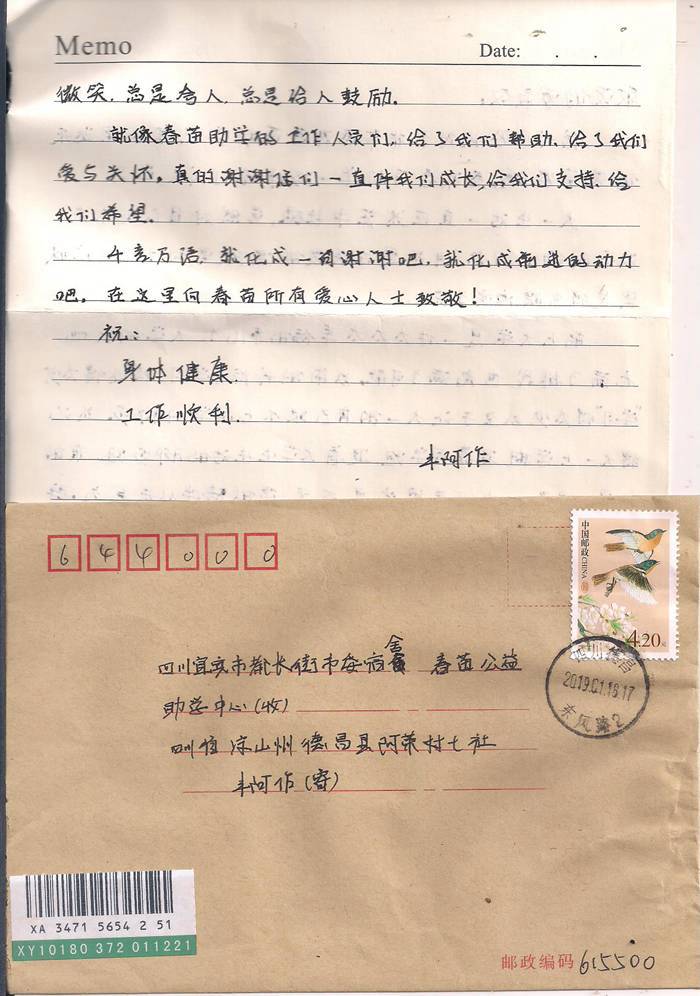 Memo
Date: . .
微笑,总是夸人,总是给人鼓励.
就像春苗助学的工作人员们,给了我们帮助,给了我们
爱与关怀,真的谢谢你们一直伴我们成长,给我们支持,给
我们希望.
千言万语,就化成一句谢谢吧,就化成前进的动力
吧。在这里向春苗所有爱心人士致敬!
祝:
身体健康.
工作顺利.
丰阿作
644000
中国邮政 CHINA
4.20
四川宜宾市都长街市委宿舍 春苗公益
助学中心(收)
2019.01.18.17
东风路2
四川省凉山州德昌县阿荣村七社
丰阿作(寄)
XA 3471 5654 2 51
XY10180 372 011221
邮政编码 615500